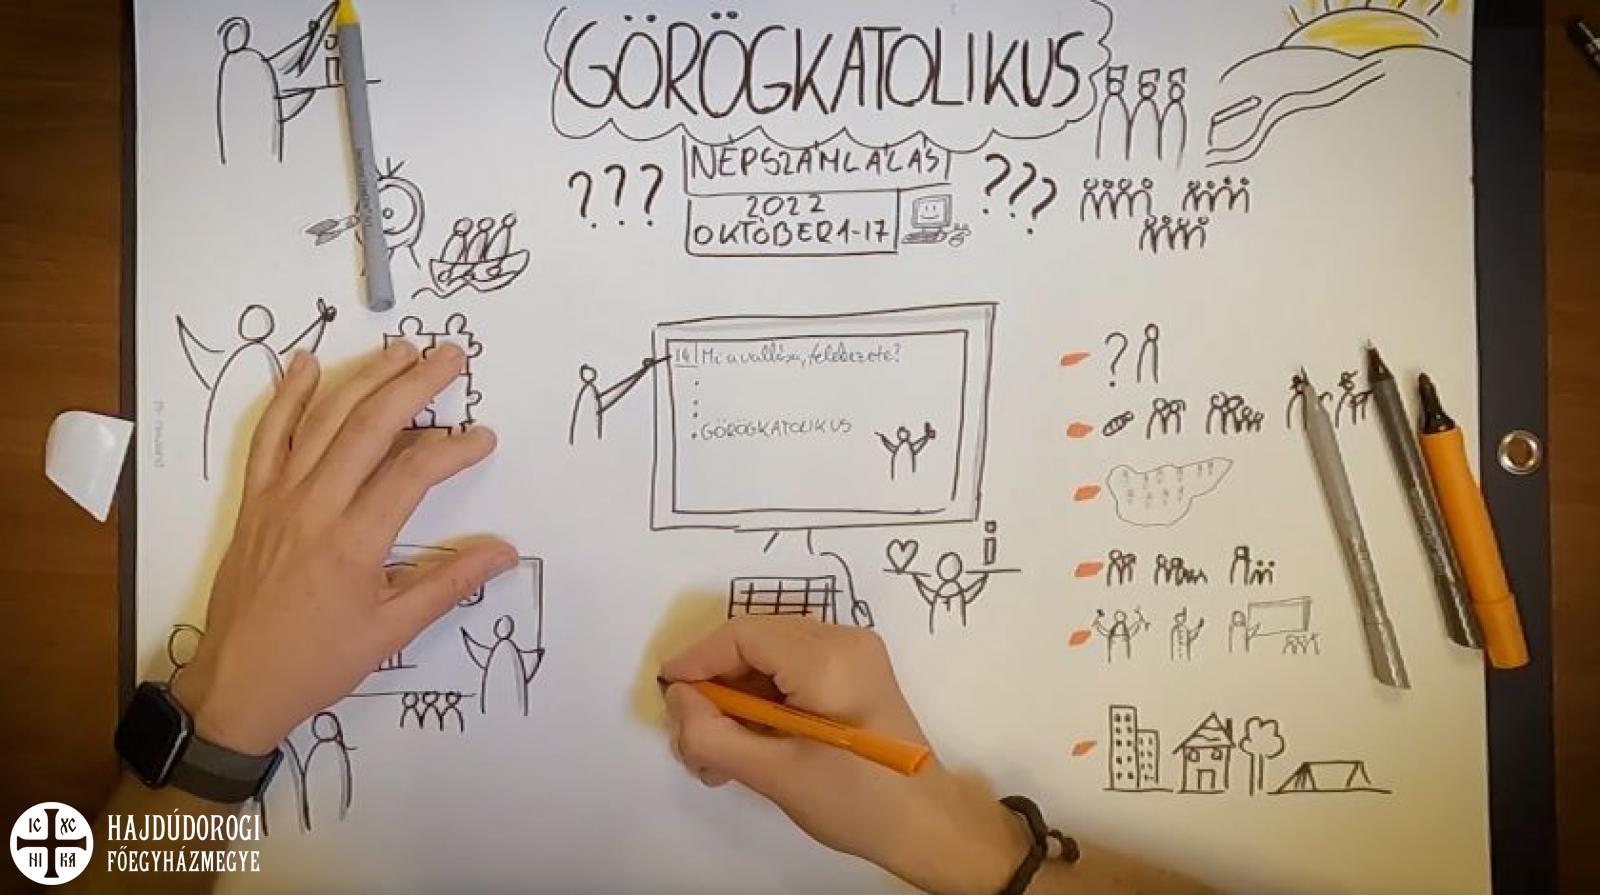 GÖRÖGKATOLIKUS
NÉPSZÁMLÁLÁS
??? ???
2022
OKTÓBER 1-17
14 Mi a vallása, felekezete?
GÖRÖGKATOLIKUS
?
IC XC
NI KA
HAJDÚDOROGI
FŐEGYHÁZMEGYE